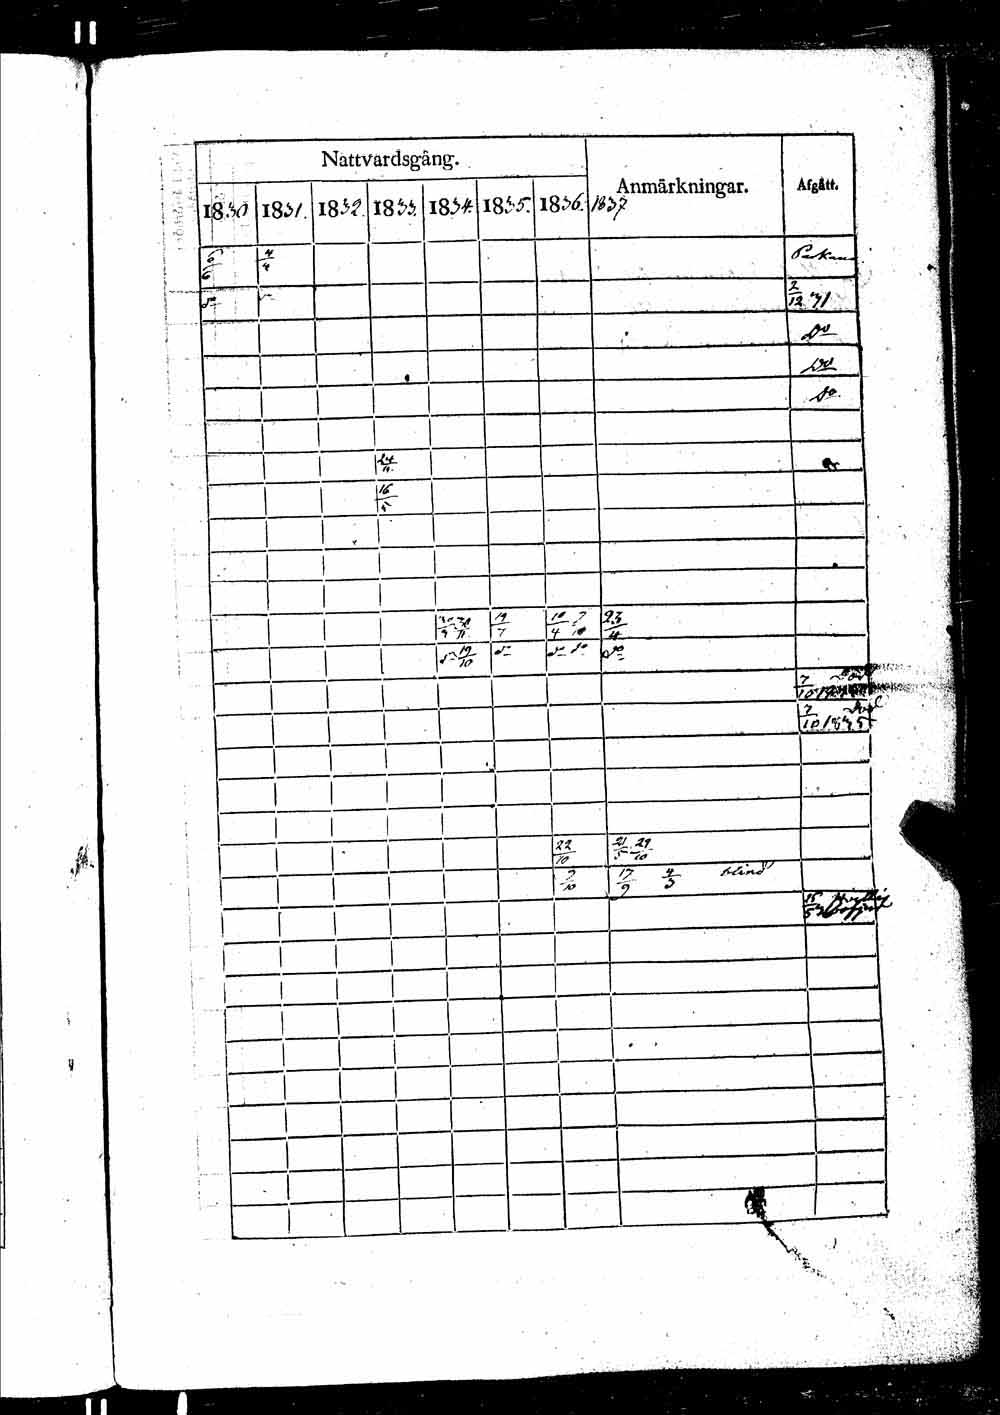 Nattvardsgång.
Anmärkningar. Afgått.
1830 1831. 1832. 1833. 1834. 1835. 1836. 1837
6/6 4/4
do 2/12 31
Do
Do
do.
24/11
16/5
19/7 10/4 7/10 23/4
do 19/10 do do do do
7/10
7/10 1835
22/10 21/5 29/10
7/10 17/9 4/3 blind
15/5